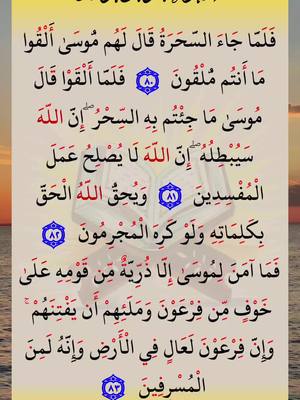 فَلَمَّا جَاءَ السَّحَرَةُ قَالَ لَهُم مُّوسَىٰ أَلْقُوا
مَا أَنتُم مُّلْقُونَ ٨٠ فَلَمَّا أَلْقَوْا قَالَ
مُوسَىٰ مَا جِئْتُم بِهِ السِّحْرُ ۖ إِنَّ اللَّهَ
سَيُبْطِلُهُ ۖ إِنَّ اللَّهَ لَا يُصْلِحُ عَمَلَ
الْمُفْسِدِينَ ٨١ وَيُحِقُّ اللَّهُ الْحَقَّ
بِكَلِمَاتِهِ وَلَوْ كَرِهَ الْمُجْرِمُونَ ٨٢
فَمَا آمَنَ لِمُوسَىٰ إِلَّا ذُرِّيَّةٌ مِّن قَوْمِهِ عَلَىٰ
خَوْفٍ مِّن فِرْعَوْنَ وَمَلَئِهِمْ أَن يَفْتِنَهُمْ ۚ
وَإِنَّ فِرْعَوْنَ لَعَالٍ فِي الْأَرْضِ وَإِنَّهُ لَمِنَ
الْمُسْرِفِينَ ٨٣